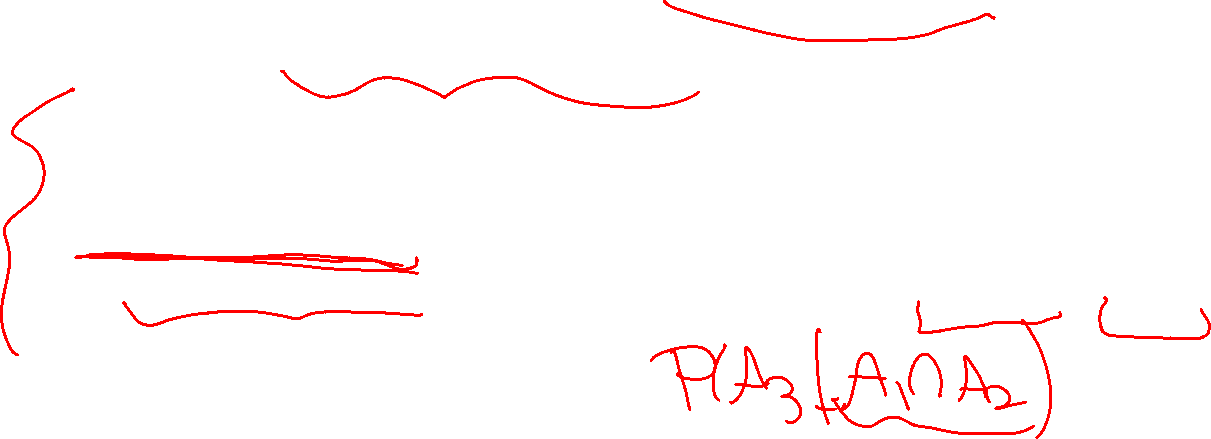 P(A₃|A₁∩A₂)